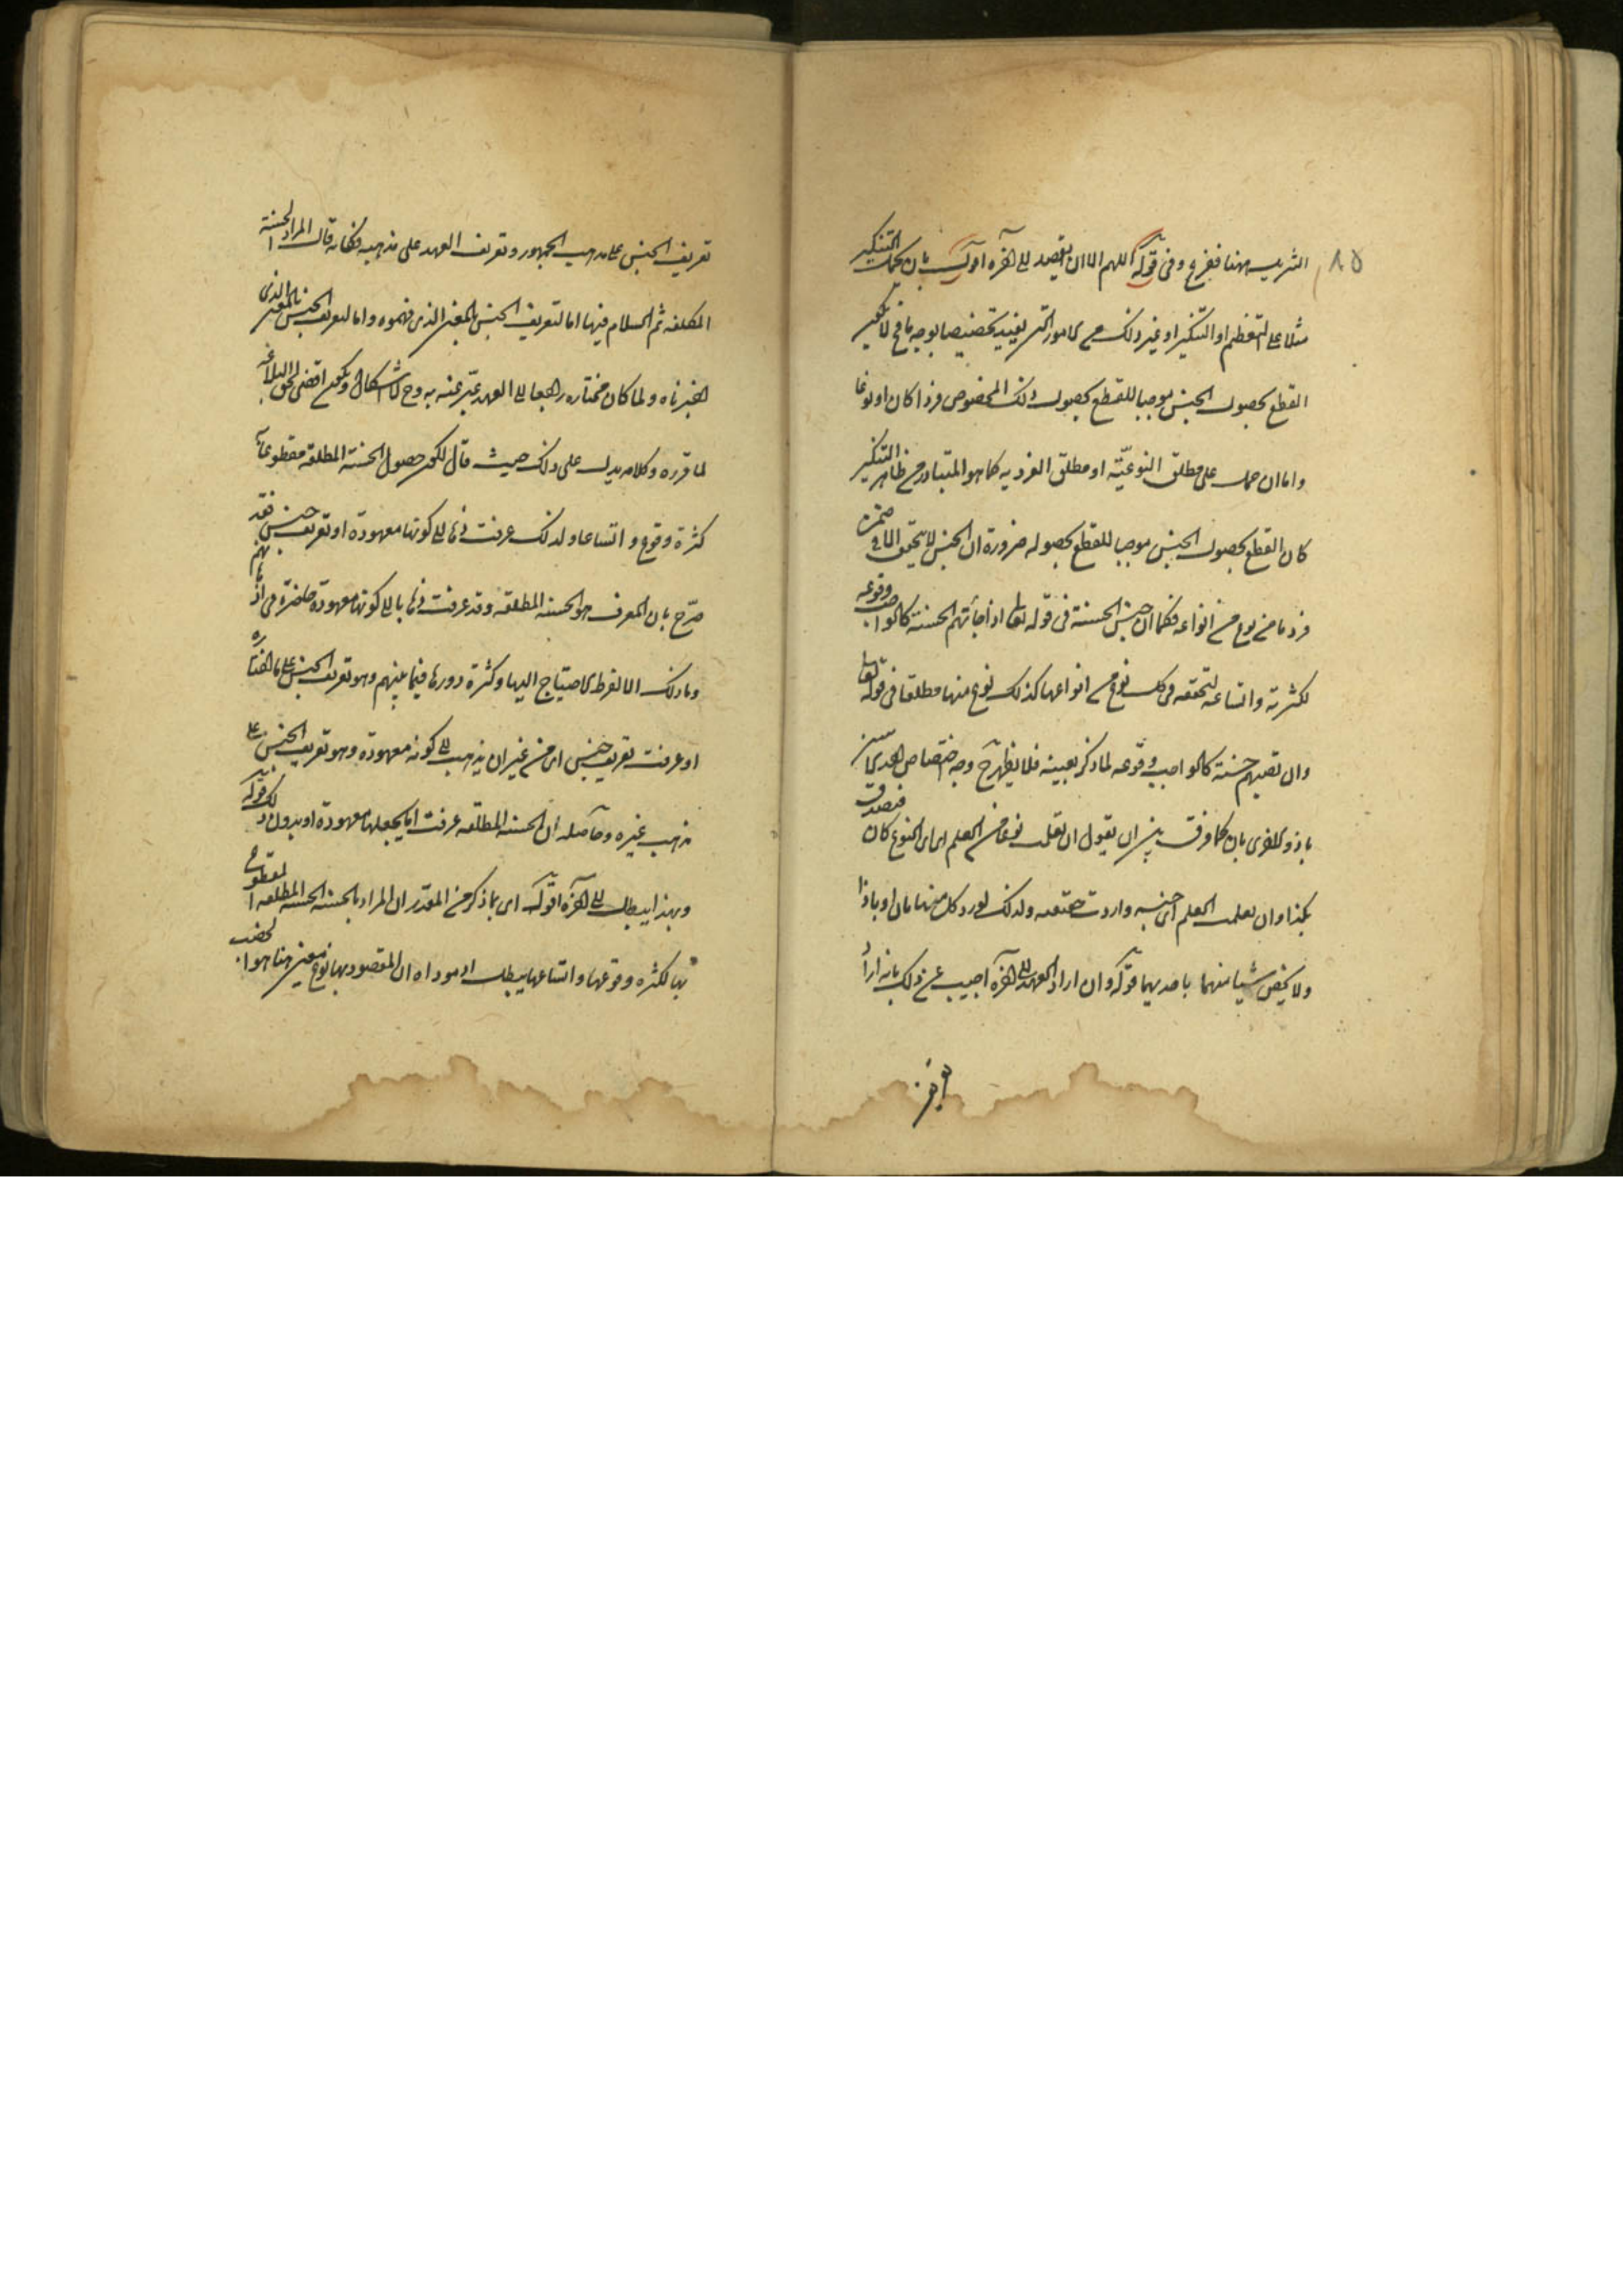 ٨٥
الشريف ههنا ففزع وفى قوله اللهم الا ان يقصد الى آخره اقول بان يحمل التنكير
مثلا على التعظيم او التكثير او غير ذلك من الامور التى يفيد تخصيصا بوجه ما فح لا يكون
القطع بحصول الجنس موجبا للقطع بحصول ذلك المخصوص فردا كان او نوعا
واما ان حمل على مطلق النوعيّة او مطلق الفردية كما هو المتبادر من ظاهر التنكير
كان القطع بحصول الجنس موجبا للقطع بحصوله ضرورة ان الجنس لا يتحقق الا فى ضمن
فرد ما من نوع من انواعه فكما ان جنس الحسنة فى قوله تعالى اذا جائتهم الحسنة كالواجب وقوعه
لكثرته واتساعه لتحققه فى كل نوع من انواعها كذلك نوع منها مطلقا فى قوله تعالى
وان تصبهم حسنة كالواجب وقوعه لما ذكر بعينه فلا يظهر ح وجه اختصاص احدى
باذا والاخرى بان كما فرق بين ان يقول ان تعلمت نوعا من العلم اى اى نوع كان فتصدق
بكذا وان تعلمت العلم اى جنسه واردت حقيقته ولذلك يورد كل منهما بان او باذا
ولا يختص شيئا منهما باحديهما قوله وان اراد العهد الى آخره اجيب عن ذلك بانه اراد
تعريف الجنس على مذهب الجمهور وتعريف العهد على مذهبه فكانه قال المراد الحسنة
المطلقه ثم السلام فيها اما لتعريف الجنس بالمعنى الذى فهموه واما لتعريف الجنس بالمعنى الذى
اخترناه ولما كان مختاره راجعا الى العهد عبّر عنه به وح لا اشكال ويكون اقضى لحق البلاغة
لما قرره وكلامه يدل على ذلك حيث قال لكون حصول الحسنة المطلقة مقطوعا به
كثرة وقوع واتساعا ولذلك عرفت ذهابا الى كونها معهودة او تعريف جنس فقد
صرّح بان المعرف هو الحسنة المطلقه وقد عرفت ذهابا الى كونها معهودة حاضرة فى اذهانهم
وما ذلك الا لفرط الاحتياج اليها وكثرة دورها فيما بينهم وهو تعريف الجنس على ما اختاره
او عرفت تعريف جنس اى من غير ان يذهب الى كونه معهودة وهو تعريف الجنس على
مذهب غيره وحاصله ان الحسنة المطلقه عرفت اما بجعلها معهودة او بدون ذلك قوله
وبهذا يبطل الى آخره اقول اى بما ذكر من المقدر ان المراد بالحسنة الحسنة المطلقه المقطوع
بها لكثره وقوعها واتساعها يبطل اذ مؤداه ان المقصود بها نوع معين هنا هو الخصب